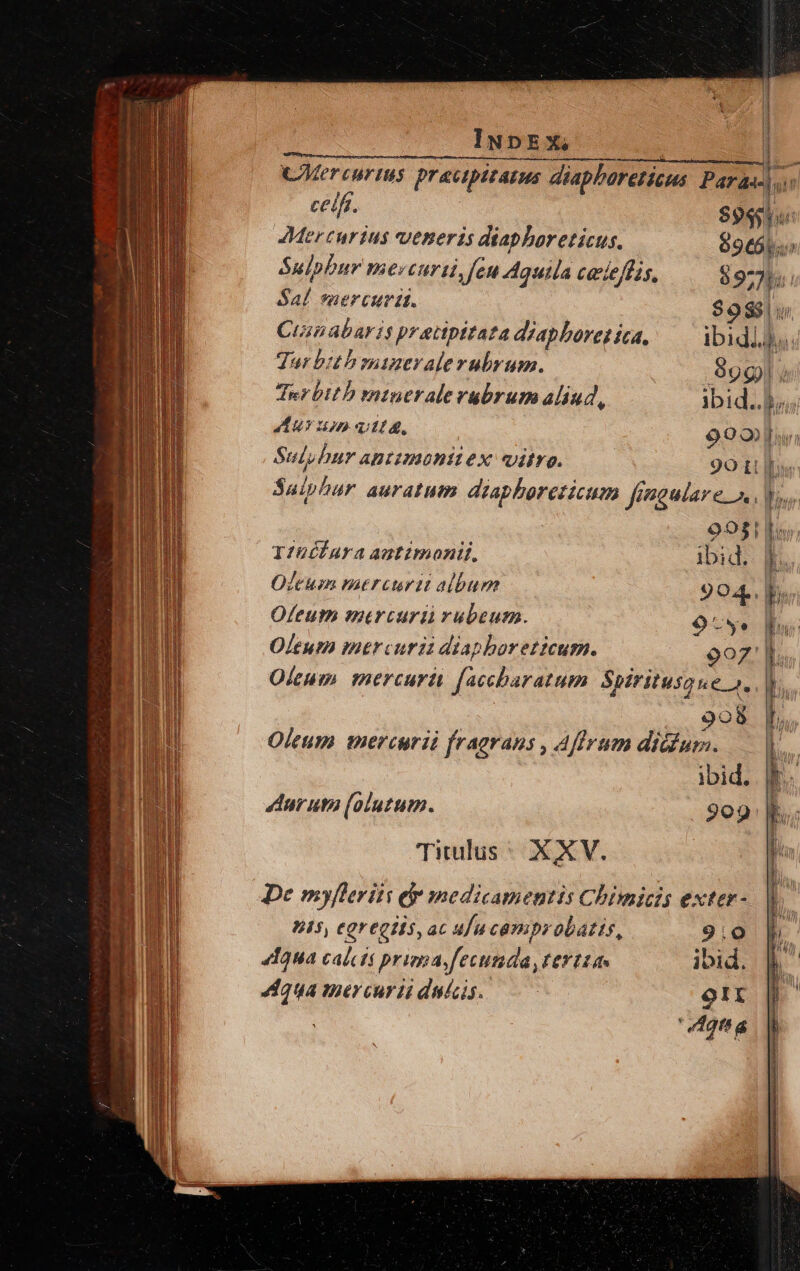 INDEX.
Mercurius præcipitatus diaphoreticus Para-
celsi.
Mercurius veneris diaphoreticus. 896
Sulphur mercurii, seu Aquila cælestis, 897
Sal mercurii. 898
Cinnabaris præcipitata diaphoretica, ibid.
Turbith minerale rubrum. 899
Turbith minerale rubrum aliud, ibid.
Aurum vitæ, 900
Sulphur antimonii ex vitro. 901
Sulphur auratum diaphoreticum singulare.
903
Tinctura antimonii, ibid.
Oleum mercurii album 904.
Oleum mercurii rubeum. 905.
Oleum mercurii diaphoreticum. 907
Oleum mercurii saccharatum Spiritusque.
908
Oleum mercurii fragrans, Astrum dictum.
ibid.
Aurum solutum. 909
Titulus XXV.
De mysteriis & medicamentis Chimicis exter-
nis, egregiis, ac usu comprobatis, 910
Aqua calcis prima, secunda, tertia. ibid.
Aqua mercurii dulcis. 911
Aqua